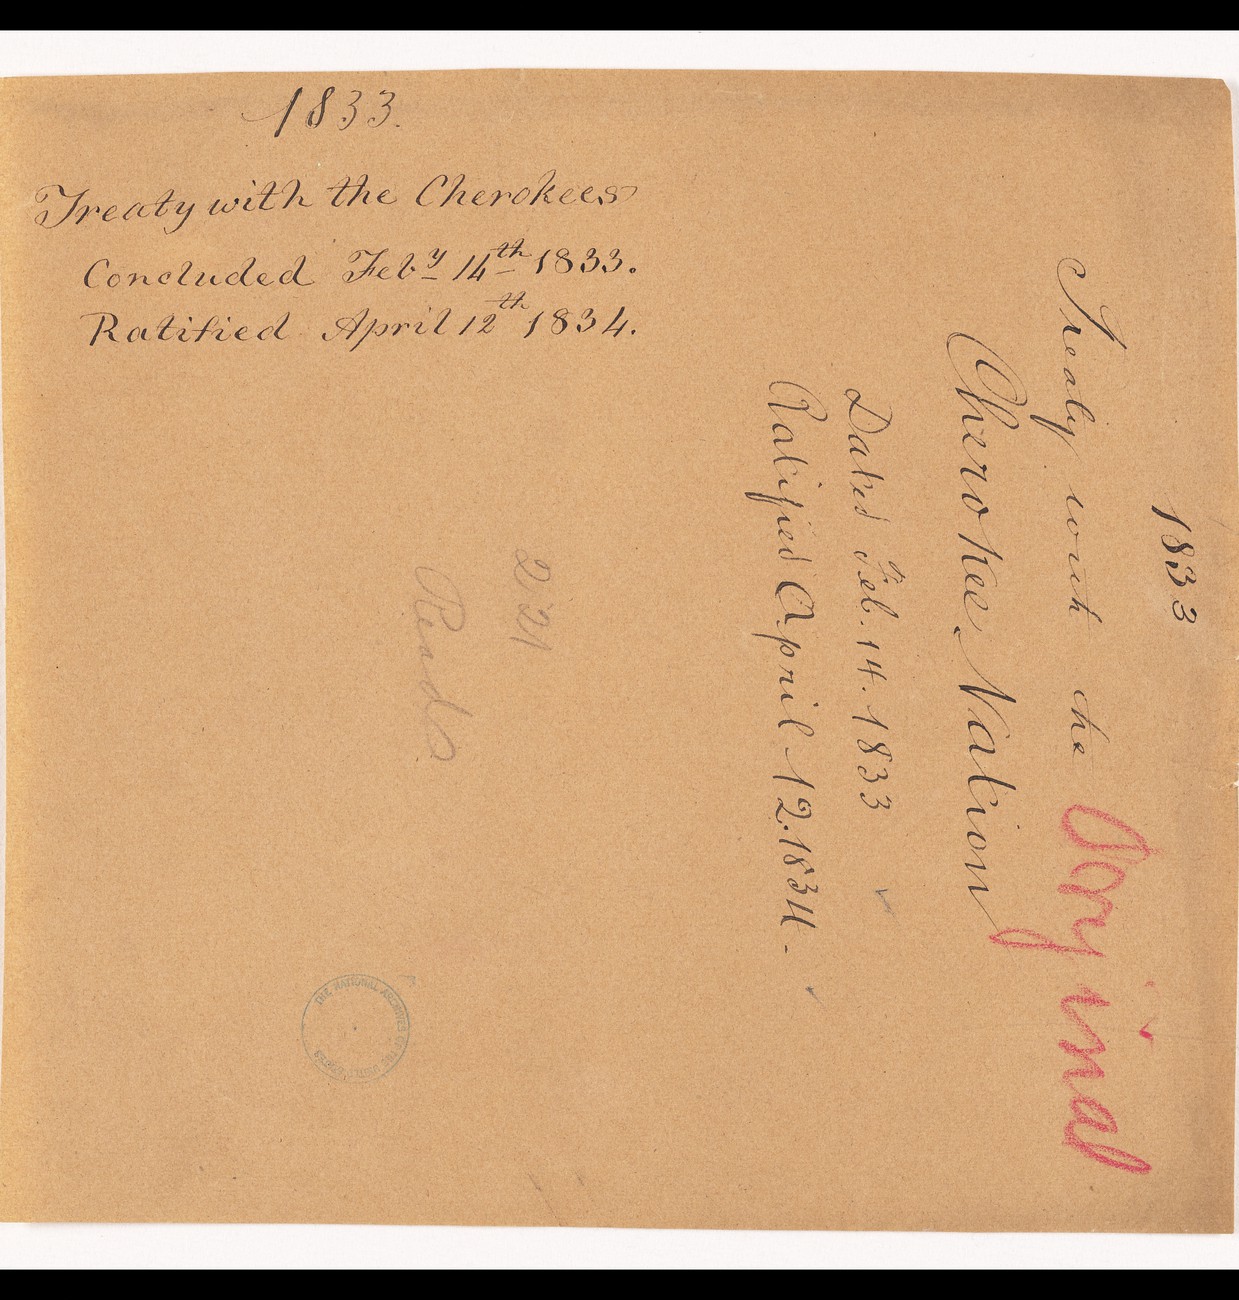 1833.
Treaty with the Cherokees
Concluded Feby 14th 1833.
Ratified April 12th 1834.
1833
Treaty with the
Cherokee Nation
Dated Feb. 14. 1833
Ratified April 12. 1834.
Original
221
Reads